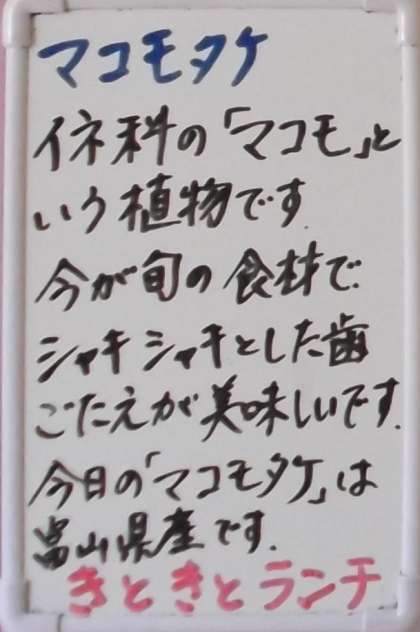 マコモタケ
イネ科の「マコモ」と
いう植物です.
今が旬の食材で
シャキシャキとした歯
ごたえが美味しいです.
今日の「マコモタケ」は
富山県産です.
きときとランチ